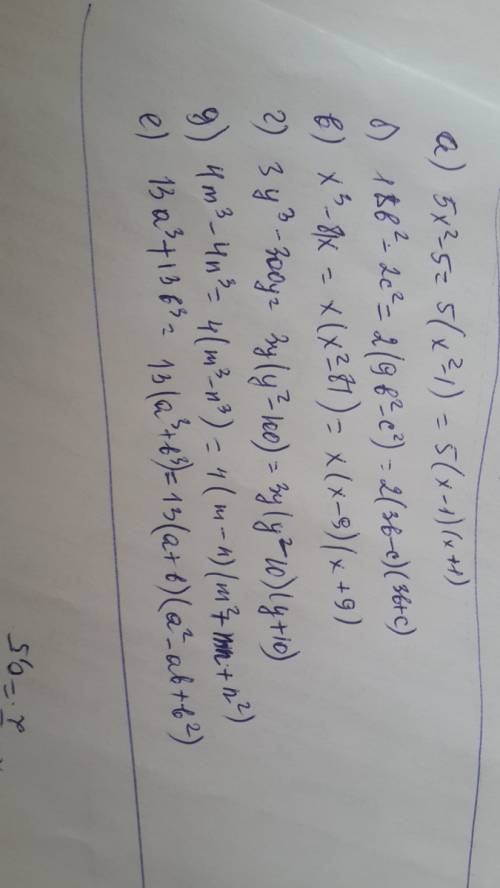 а) 5x²-5 = 5(x²-1) = 5(x-1)(x+1)
б) 18b²-2c² = 2(9b²-c²) = 2(3b-c)(3b+c)
в) x³-81x = x(x²-81) = x(x-9)(x+9)
г) 3y³-300y = 3y(y²-100) = 3y(y²-10)(y+10)
д) 4m³-4n³ = 4(m³-n³) = 4(m-n)(m²+mn+n²)
е) 13a³+13b³ = 13(a³+b³) = 13(a+b)(a²-ab+b²)